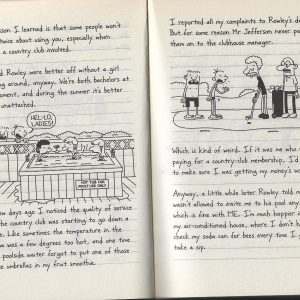 sson I learned is that some people won't
twice about using you, especially when
a country club involved.
d Rowley were better off without a girl
ing around, anyway. We're both bachelors at
oment, and during the summer it's better
unattached.
HEL-LO,
LADIES!
HOT TUB FOR
ADULT USE ONLY
ew days ago I noticed the quality of service
the country club was starting to go down a
e. Like sometimes the temperature in the
a was a few degrees too hot, and one time
poolside waiter forgot to put one of those
le umbrellas in my fruit smoothie.
I reported all my complaints to Rowley's d
But for some reason Mr. Jefferson never pa
them on to the clubhouse manager.
Which is kind of weird. If it was me who w
paying for a country-club membership, I'd
to make sure I was getting my money's wo
Anyway, a little while later Rowley told m
wasn't allowed to invite me to his pool any
which is fine with ME. I'm much happier
my air-conditioned house, where I don't h
check my soda can for bees every time I
take a sip.